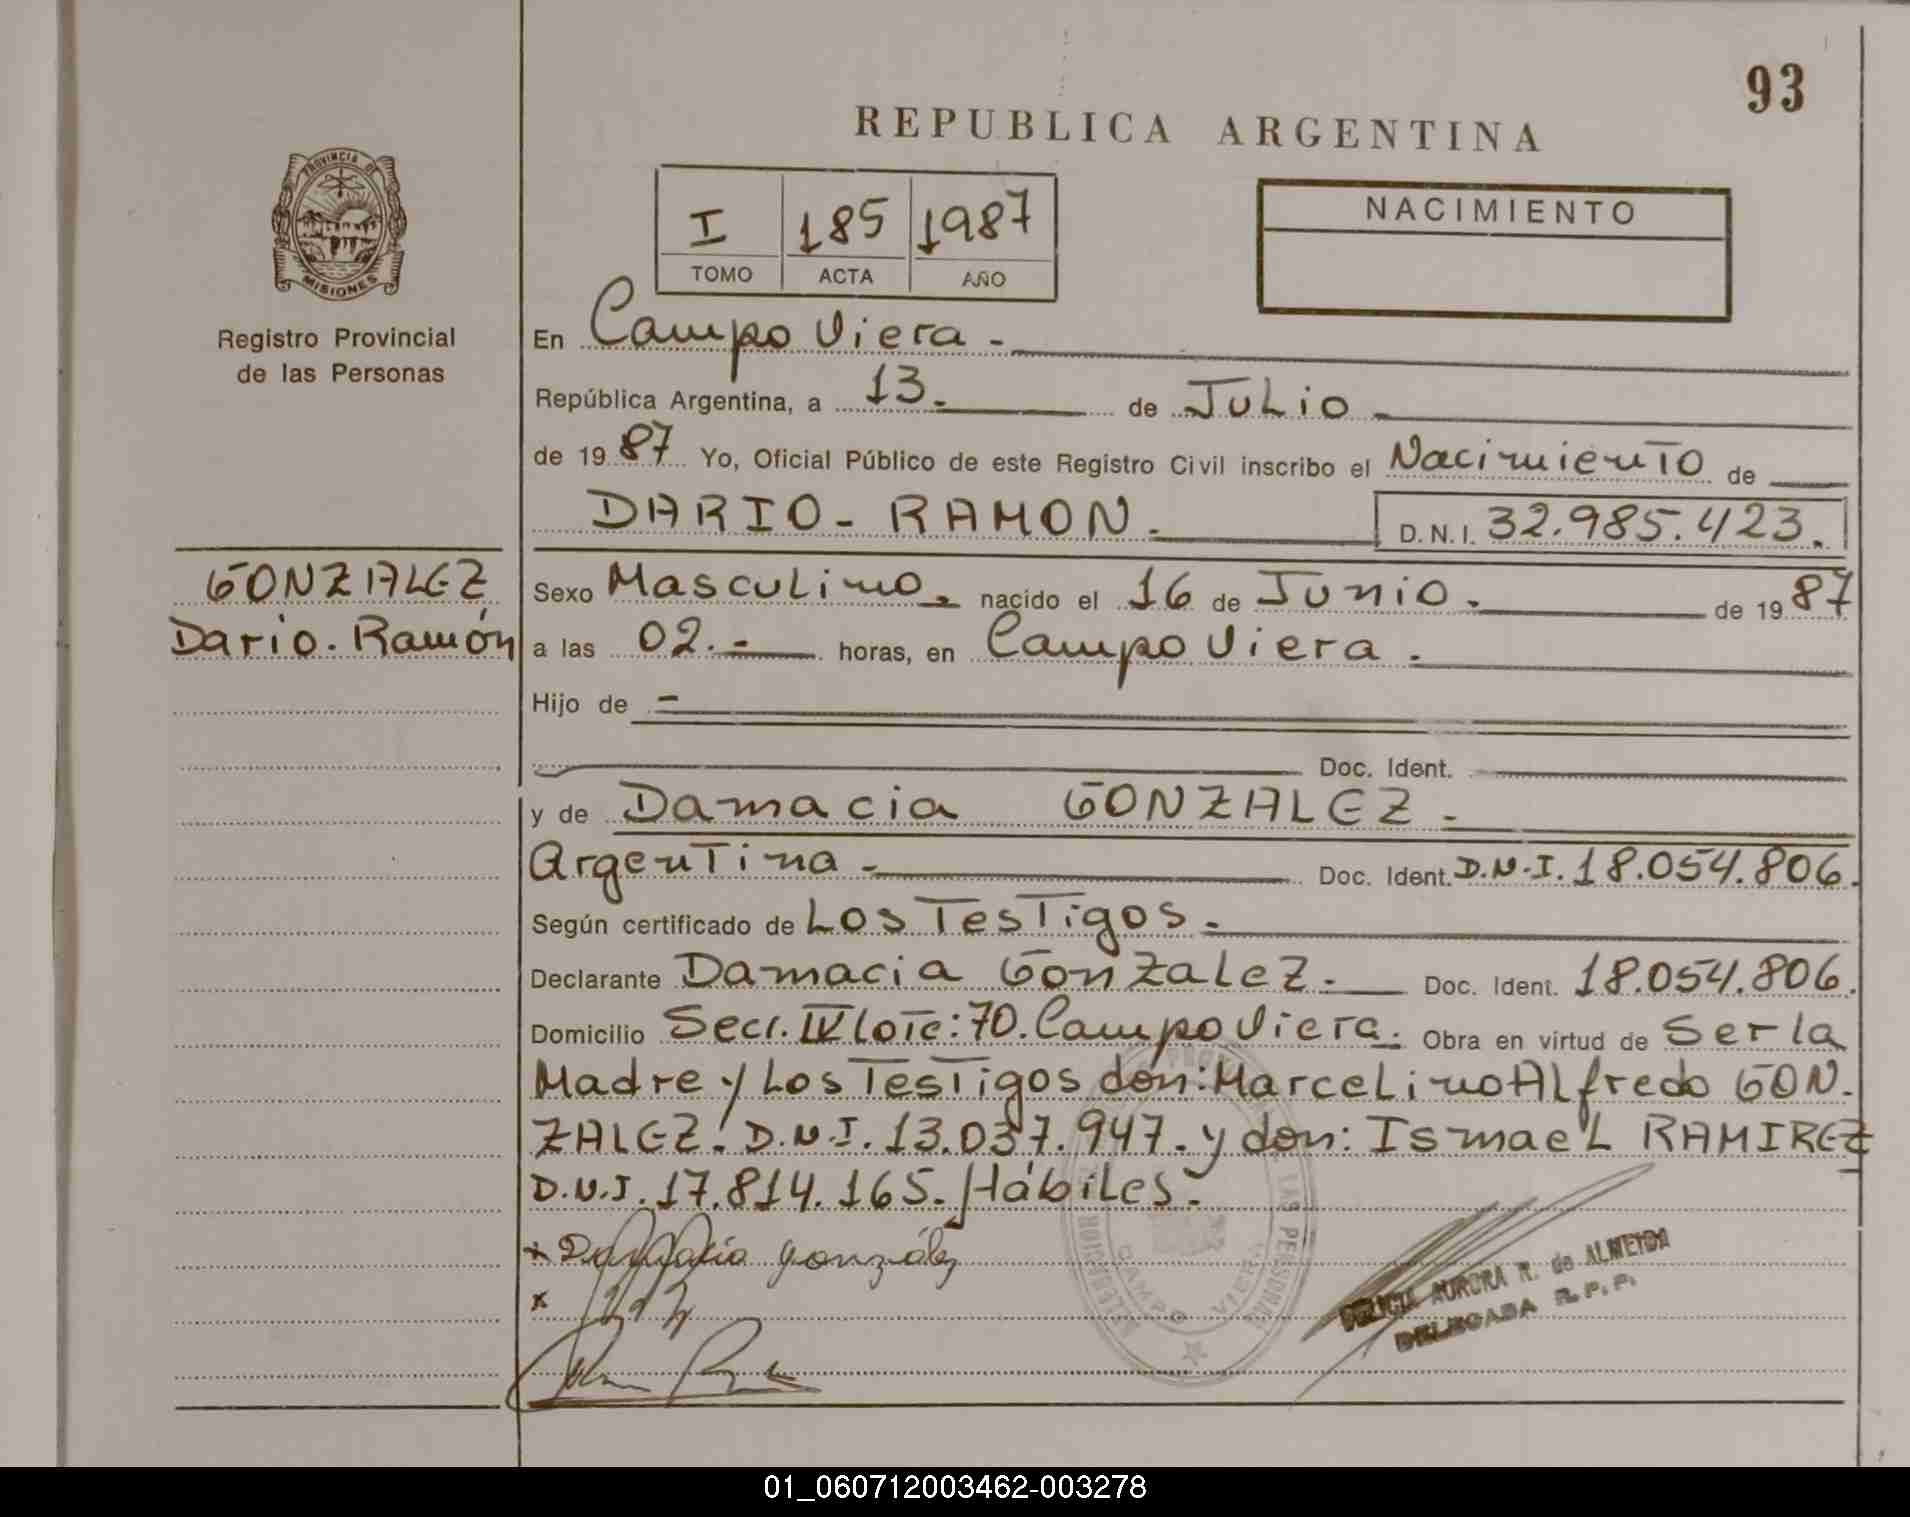 93
REPUBLICA ARGENTINA
PROVINCIA DE
MISIONES
Registro Provincial
de las Personas
I 185 1987
TOMO ACTA AÑO
NACIMIENTO
En Campo Viera.-
República Argentina, a 13.- de Julio.-
de 1987 Yo, Oficial Público de este Registro Civil inscribo el Nacimiento de
DARIO - RAMON.- D.N.I. 32.985.423.
GONZALEZ
Dario. Ramón
Sexo Masculino.- nacido el 16 de Junio.- de 1987
a las 02.- horas, en Campo Viera.
Hijo de -
Doc. Ident.
y de Damacia GONZALEZ.-
Argentina.- Doc. Ident. D.N.I. 18.054.806.
Según certificado de Los Testigos.-
Declarante Damacia Gonzalez.- Doc. Ident. 18.054.806.
Domicilio Secc. IV Lote: 70. Campo Viera.- Obra en virtud de Ser la
Madre y Los Testigos don: Marcelino Alfredo GON-
ZALEZ. D.N.I. 13.037.947. y don: Ismael RAMIREZ
D.N.I. 17.814.165. Hábiles.-
x Damacia gonzález
x
CAMPO VIERA
LAS PERSONAS
AURORA R. de ALMEIDA
DELEGADA R.P.P.
01_060712003462-003278